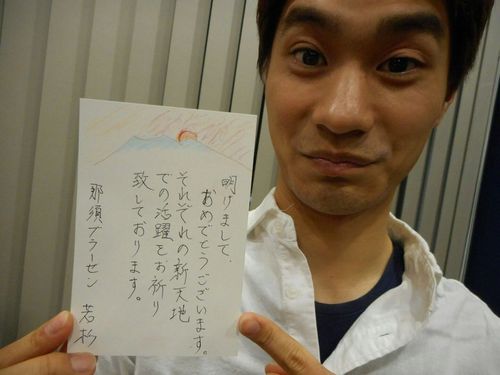 明けまして、
おめでとうございます。
それぞれの新天地
での活躍をお祈り
致しております。
那須ブラーゼン 若杉